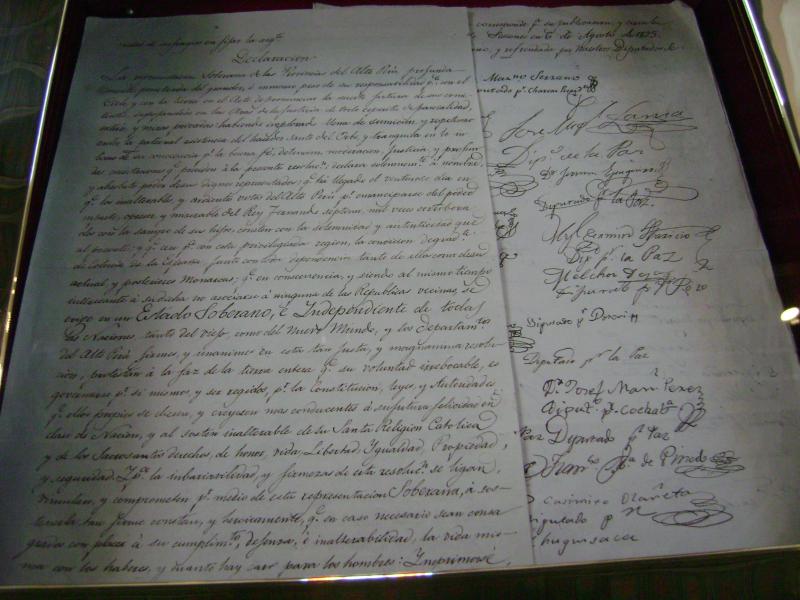 Declaracion
La representacion Soberana de las Provincias del Alto Perú, profunda-
mente penetrada del grandor, é inmenso peso de su responsabilidad p.ª con el
Cielo, y con la tierra, en el Acto de pronunciar la suerte futura de sus comi-
tentes, despojandose en las Aras de la Justicia de todo espiritu de parcialidad,
interes, y miras privadas: habiendo implorado llena de sumicion, y respetuoso
ardor la paternal asistencia del hacedor Santo del Orbe, y tranquila en lo in-
timo de su conciencia p.ª la buena fé, detencion, moderacion, Justicia, y profun-
das meditaciones q.ᵉ presiden á la presente resoluc.ⁿ, declara solemnem.ᵗᵉ á nombre,
y absoluto poder de sus dignos representados; q.ᵉ há llegado el venturoso dia en
q.ᵉ los inalterables, y ardientes votos del Alto Perú p.ʳ emanciparse del poder
injusto, opresor, y miserable del Rey Fernando septimo, mil veces corrobora-
dos con la sangre de sus hijos, consten con la solemnidad, y autenticidad que
al presente; y q.ᵉ cese p.ª con esta privilegiada region, la condicion degrad.ᵗᵉ
de Colonia de la España, junto con toda dependencia, tanto de ella, como de su
actual, y posteriores Monarcas; q.ᵉ en consecuencia, y siendo al mismo tiempo
interesante á su dicha no asociarse á ninguna de las Republicas vecinas, se
erige en un Estado Soberano, é Independiente de todas
las Naciones, tanto del viejo, como del nuevo Mundo, y los departam.ᵗᵒˢ
del Alto Perú, firmes, y unanimes en esta tan justa, y magnanima resolu-
cion, protestan á la faz de la tierra entera q.ᵉ su voluntad irrebocable, es
governarse p.ʳ sí mismos, y ser regidos, p.ʳ la Constitucion, leyes, y Autoridades
q.ᵉ ellos propios se diesen, y creyesen mas conducentes á su futura felicidad en
clase de Nacion, y al sosten inalterable de su Santa Religion Catolica
y de los Sacrosantos derechos, de honor, vida, Libertad, Ygualdad, Propiedad,
y seguridad. Y p.ª la invariabilidad, y firmeza de esta resoluc.ⁿ se ligan,
vinculan, y comprometen p.ʳ medio de esta representacion Soberana, á sos-
tenerla, tan firme, constan., y heroicamente, q.ᵉ en caso necesario sean consa-
grados con placer á su cumplim.ᵗᵒ, defensa, é inalterabilidad, la vida mis-
ma con los haberes, y quanto hay caro para los hombres: Imprimase,
corresponde p.ª su publicacion, y circula
de Sesiones en 6 de Agosto de 1825
mano, y refrendada por nuestros Diputados
Mar.ⁿᵒ Serrano
putado p.ʳ Charcas
Jose Mig.ˡ Lanza
Dip.º de la Paz
Diputado p.ʳ la Paz
Dip.º p.ʳ la Paz
Melchor
Diputado p.ʳ
Diputado p.ʳ
Diputado p.ʳ la Paz
D.ʳ Josef Man.ˡ Perez
Diput.º p.ʳ Cochab.ª
Paz Diputado p.ʳ Paz
Fran.ᶜᵒ de Pinedo
Casimiro Olañeta
Diputado p.ʳ
Chuquisaca